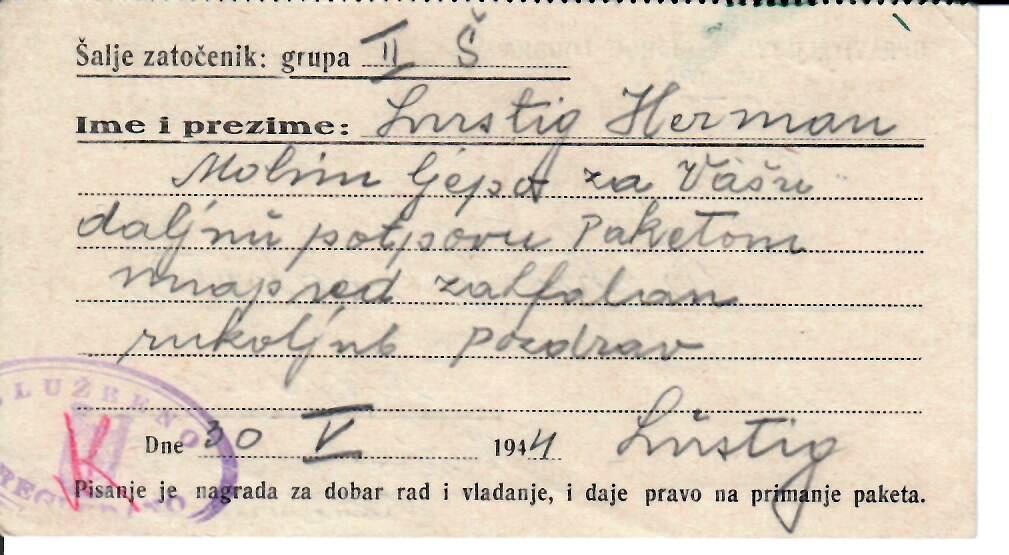 Šalje zatočenik: grupa II Š
Ime i prezime: Lustig Herman
Molim ljepo za Vašu
daljnu potpovu Paketom
unapred zalfalan
rukoljub Pozdrav
Dne 30 V 1944 Lustig
Pisanje je nagrada za dobar rad i vladanje, i daje pravo na primanje paketa.
SLUŽBENO
K